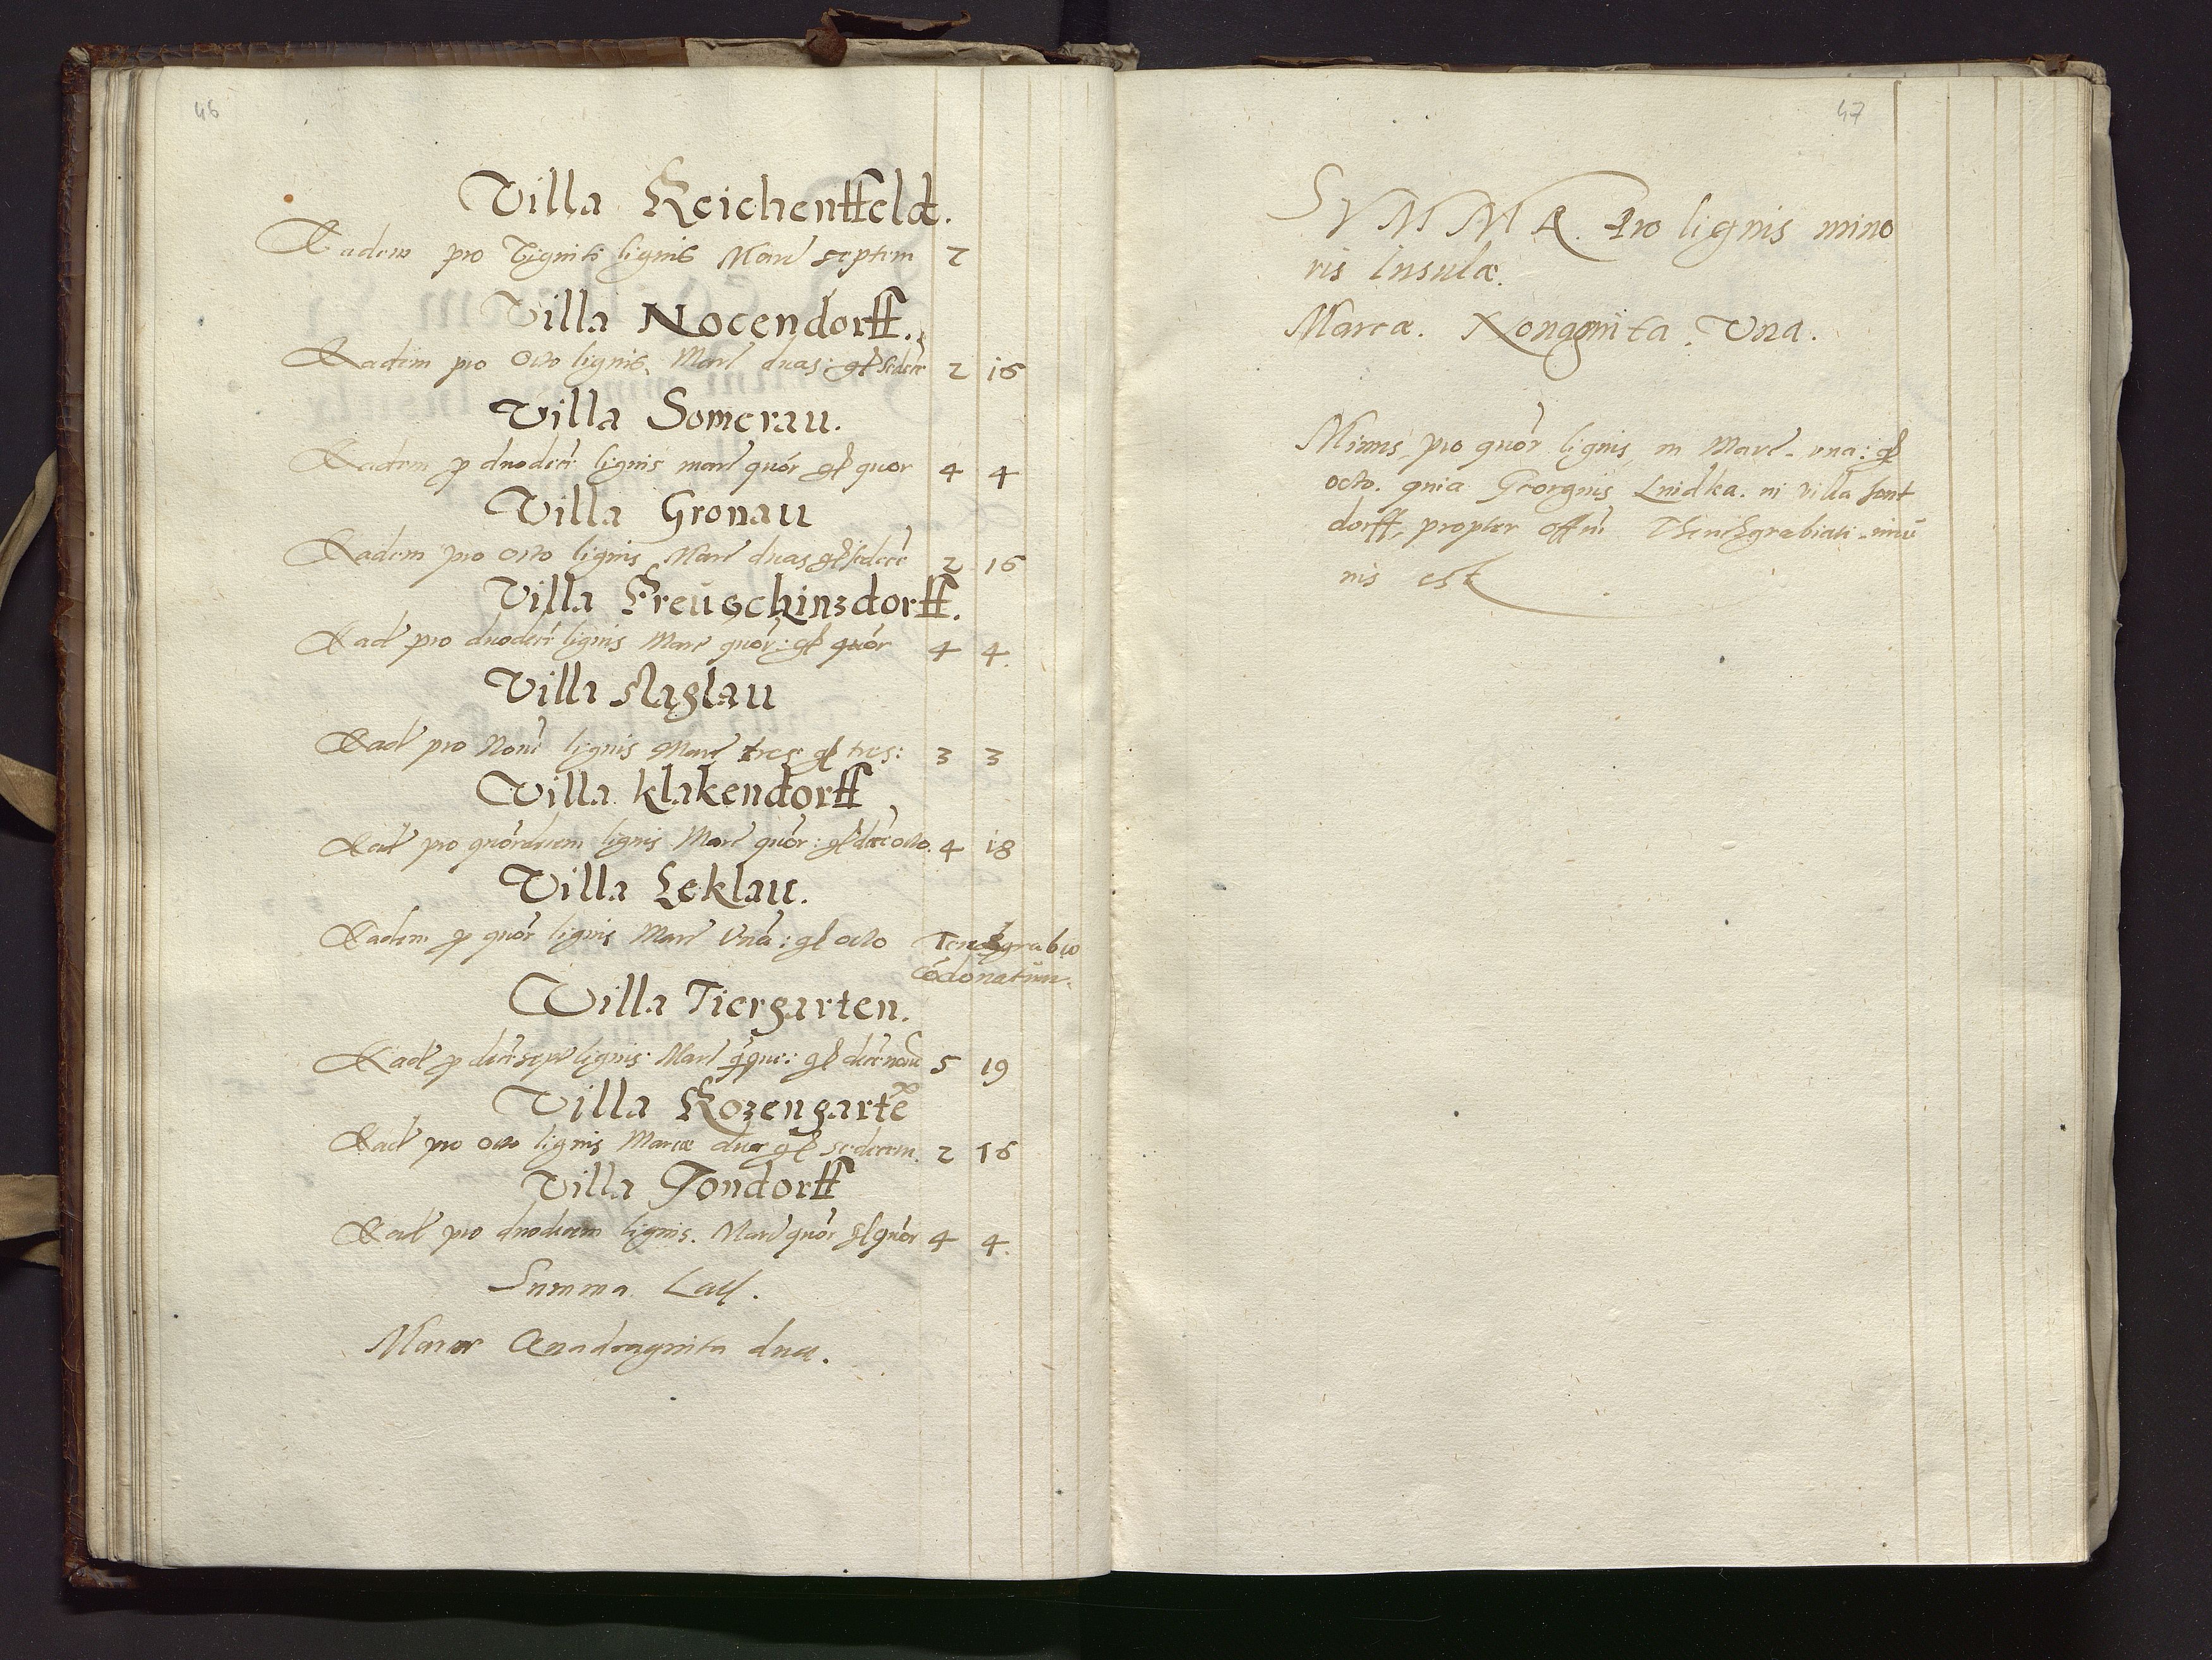 46
Villa Reichenffeldt.
Eadem pro Viginti lignis Marc septem 7
Villa Nocendorff.
Eadem pro Octo lignis. Marc duas: gr sedecē 2 16
Villa Somerau.
Eadem p duodecī lignis marc quór gr quor 4 4
Villa Gronau
Eadem pro octo lignis Marc duas gr sedecē 2 16
Villa Preuschinzdorff.
Ead pro duodecī lignis Marc quór: gr quór 4 4.
Villa
Ead pro Nouē lignis Marc tres gr tres: 3 3
Villa klakendorff
Ead pro quórdecem lignis Marc quór: gr decē octo. 4 18
Villa Leklau.
Eadem p quór lignis Marc Vnā: gr octo Tenchgrabio
cōdonatum.
Villa Tiergarten.
Ead p decē sept lignis. Marc qīque: gr decē nouē 5 19
Villa Rozengartē
Ead pro octo lignis Marcæ duæ gr sedecem. 2 16
Villa Jondorff
Ead pro duodecem lignis. Marc quór gr quór 4 4.
Summa
Marcæ Quadragnita duæ.
47
SVMMA. Pro lignis mino
ris Insulæ.
Marcæ. Nonagnita. Vna.
Minus, pro quór lignis, in Marc. vna: gr
octo. quia Georgius in villa
dorff, propter offm
nis est